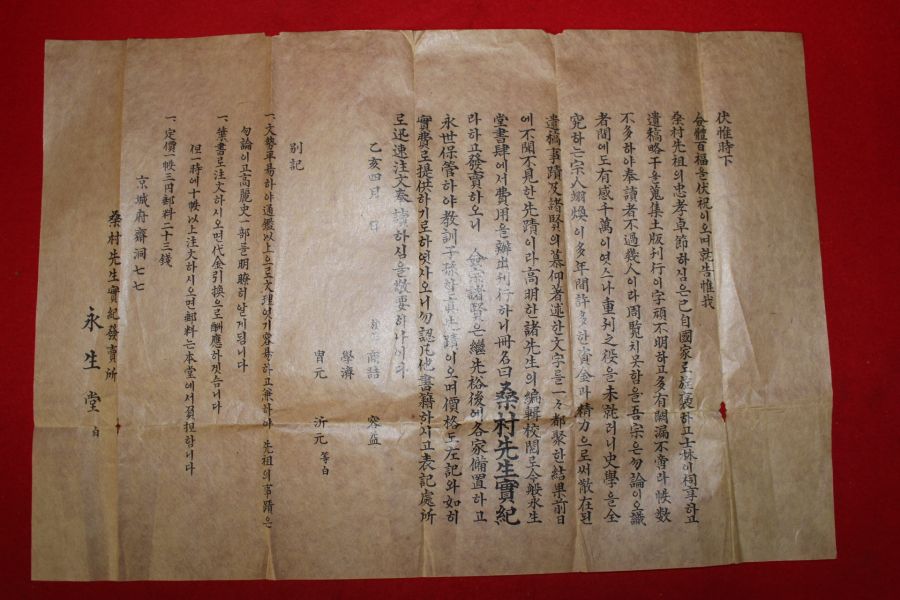 伏惟時下
僉體百福을伏祝이오며就告惟我
桑村先祖의忠孝卓節하심은已自國家로旌褒하고士林이祠享하고
遺稿略干을蒐集玉版刊行이字頑不明하고多有闕漏不啻라帙數
不多하야奉讀者不過幾人이라周覽치못함을吾宗은勿論이오識
者間에도有感千萬이엿스나重刊之役을未就러니史學을全
究하는宗人翊煥이多年間許多한資金과精力으로써散在된
遺稿事蹟及諸賢의慕仰著述한文字를一々都聚한結果前日
에不聞不見한先蹟이라高明한諸先生의編輯校閱로今般永生
堂書肆에서費用을辦出刊行하니冊名曰桑村先生實紀
라하고發賣하오니 僉宗諸賢은繼先裕後에各家備置하고
永世保管하야教訓子孫할眞先蹟이오며價格도左記와如히
實費로提供하기로하엿사오니勿認凡他書籍하시고表記處所
로迅速注文奉讀하심을敬要하나이다
乙亥四月 日
商喆 容益
學濟
胄元 沂元 等白
別記
一、文勢平易하야通鑑以上으로文理엇기容易하고兼하야 先祖의事蹟은
勿論이고高麗史一部를明瞭히알게됩니다
一、葉書로注文하시오면代金引換으로酬應하겟슴니다
但一時에十帙以上注文하시오면郵料는本堂에서負担합니다
一、定價一帙三円郵料二十三錢
京城府齋洞七七
桑村先生實紀發賣所
永生堂 白